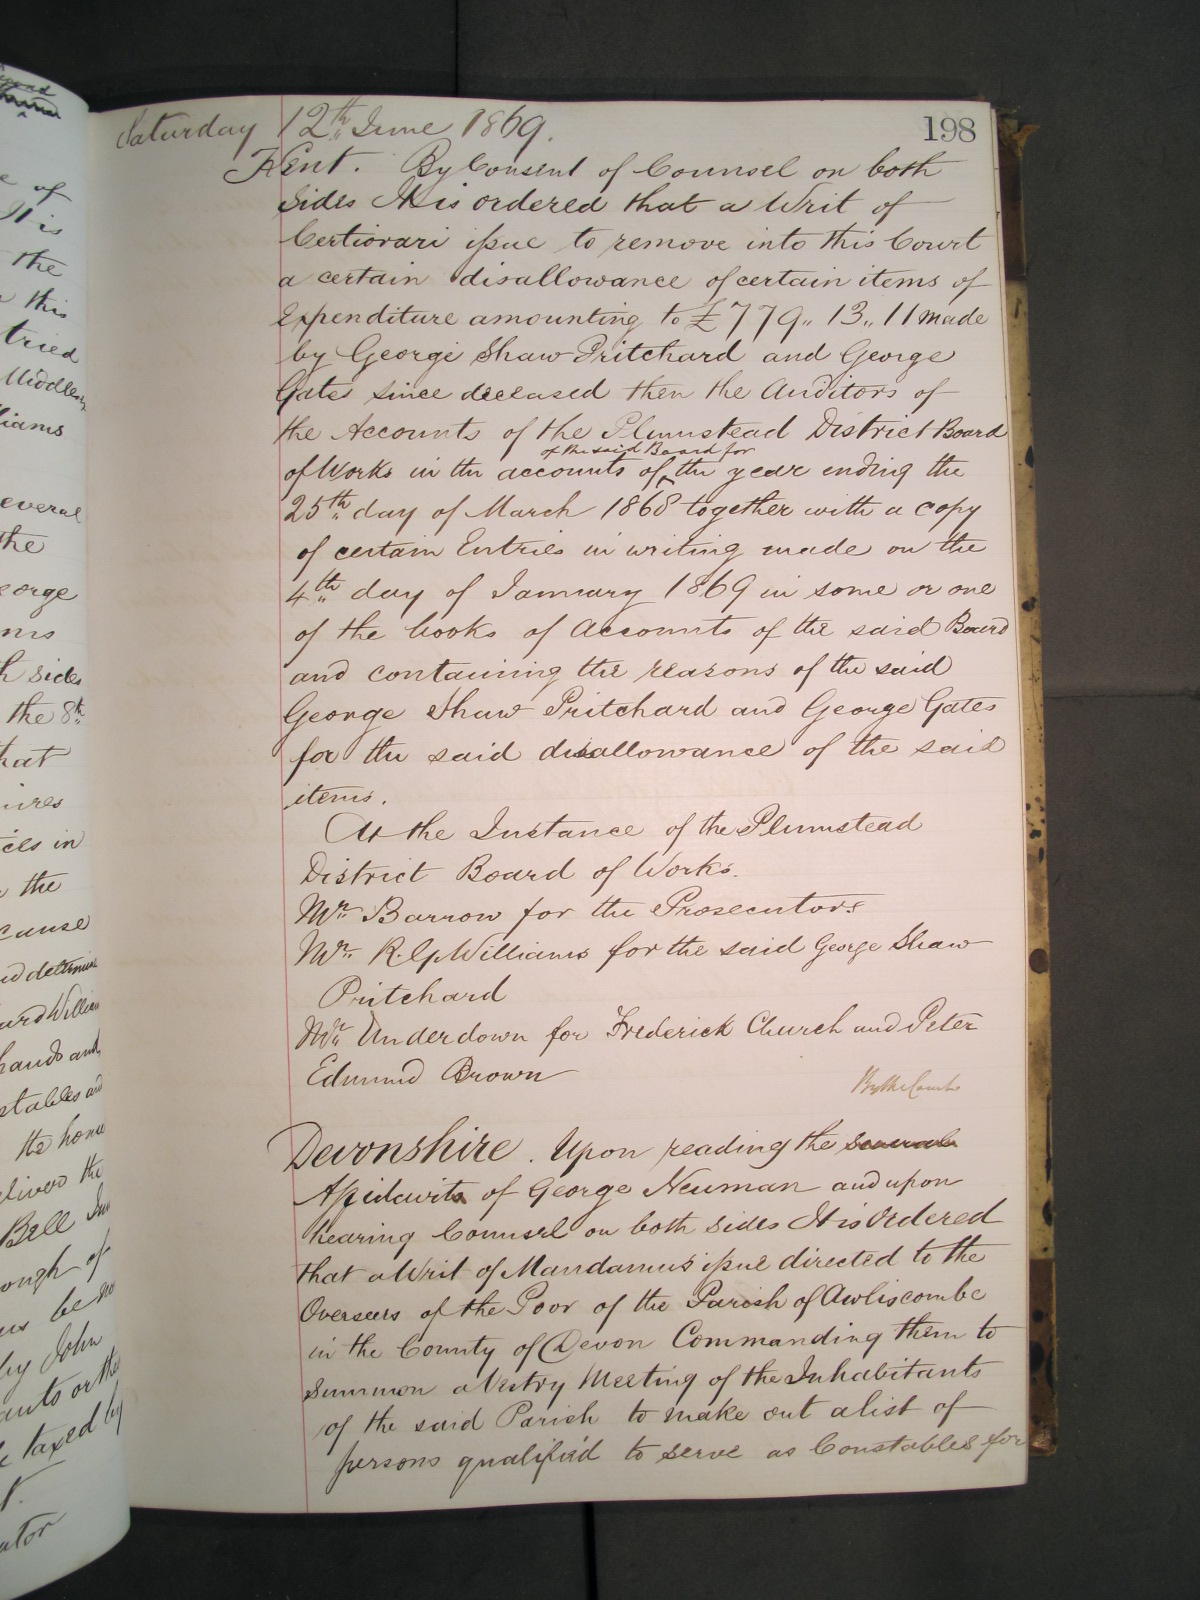 198
Saturday 12th June 1869.
Kent. By Consent of Counsel on both
sides It is ordered that a Writ of
Certiorari issue to remove into this Court
a certain disallowance of certain items of
Expenditure amounting to £779,, 13,, 11 made
by George Shaw Pritchard and George
Gates since deceased then the Auditors of
the Accounts of the Plumstead District Board
of the said Board for
of Works in the accounts of ‸ the year ending the
25th day of March 1868 together with a copy
of certain Entries in writing made on the
4th day of January 1869 in some or one
of the books of Accounts of the said Board
and containing the reasons of the said
George Shaw Pritchard and George Gates
for the said disallowance of the said
items.
At the Instance of the Plumstead
District Board of Works.
Mr. Barrow for the Prosecutors
Mr. R. G. Williams for the said George Shaw
Pritchard
Mr. Underdown for Frederick Church and Peter
Edmund Brown
By the Court
Devonshire. Upon reading the several
Affidavits of George Neuman and upon
hearing Counsel on both sides It is Ordered
that a Writ of Mandamus issue directed to the
Overseers of the Poor of the Parish of Awliscombe
in the County of Devon Commanding them to
summon a Vestry Meeting of the Inhabitants
of the said Parish to make out a list of
persons qualified to serve as Constables for